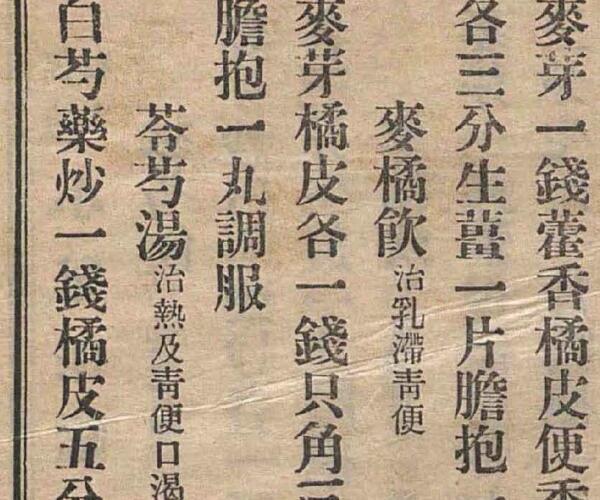 麥芽一錢藿香橘皮便香
各三分生薑一片膽抱一
麥橘飮治乳滯靑便
麥芽橘皮各一錢只角三
膽抱一丸調服
芩芍湯治熱及靑便口渴
白芍藥炒一錢橘皮五分